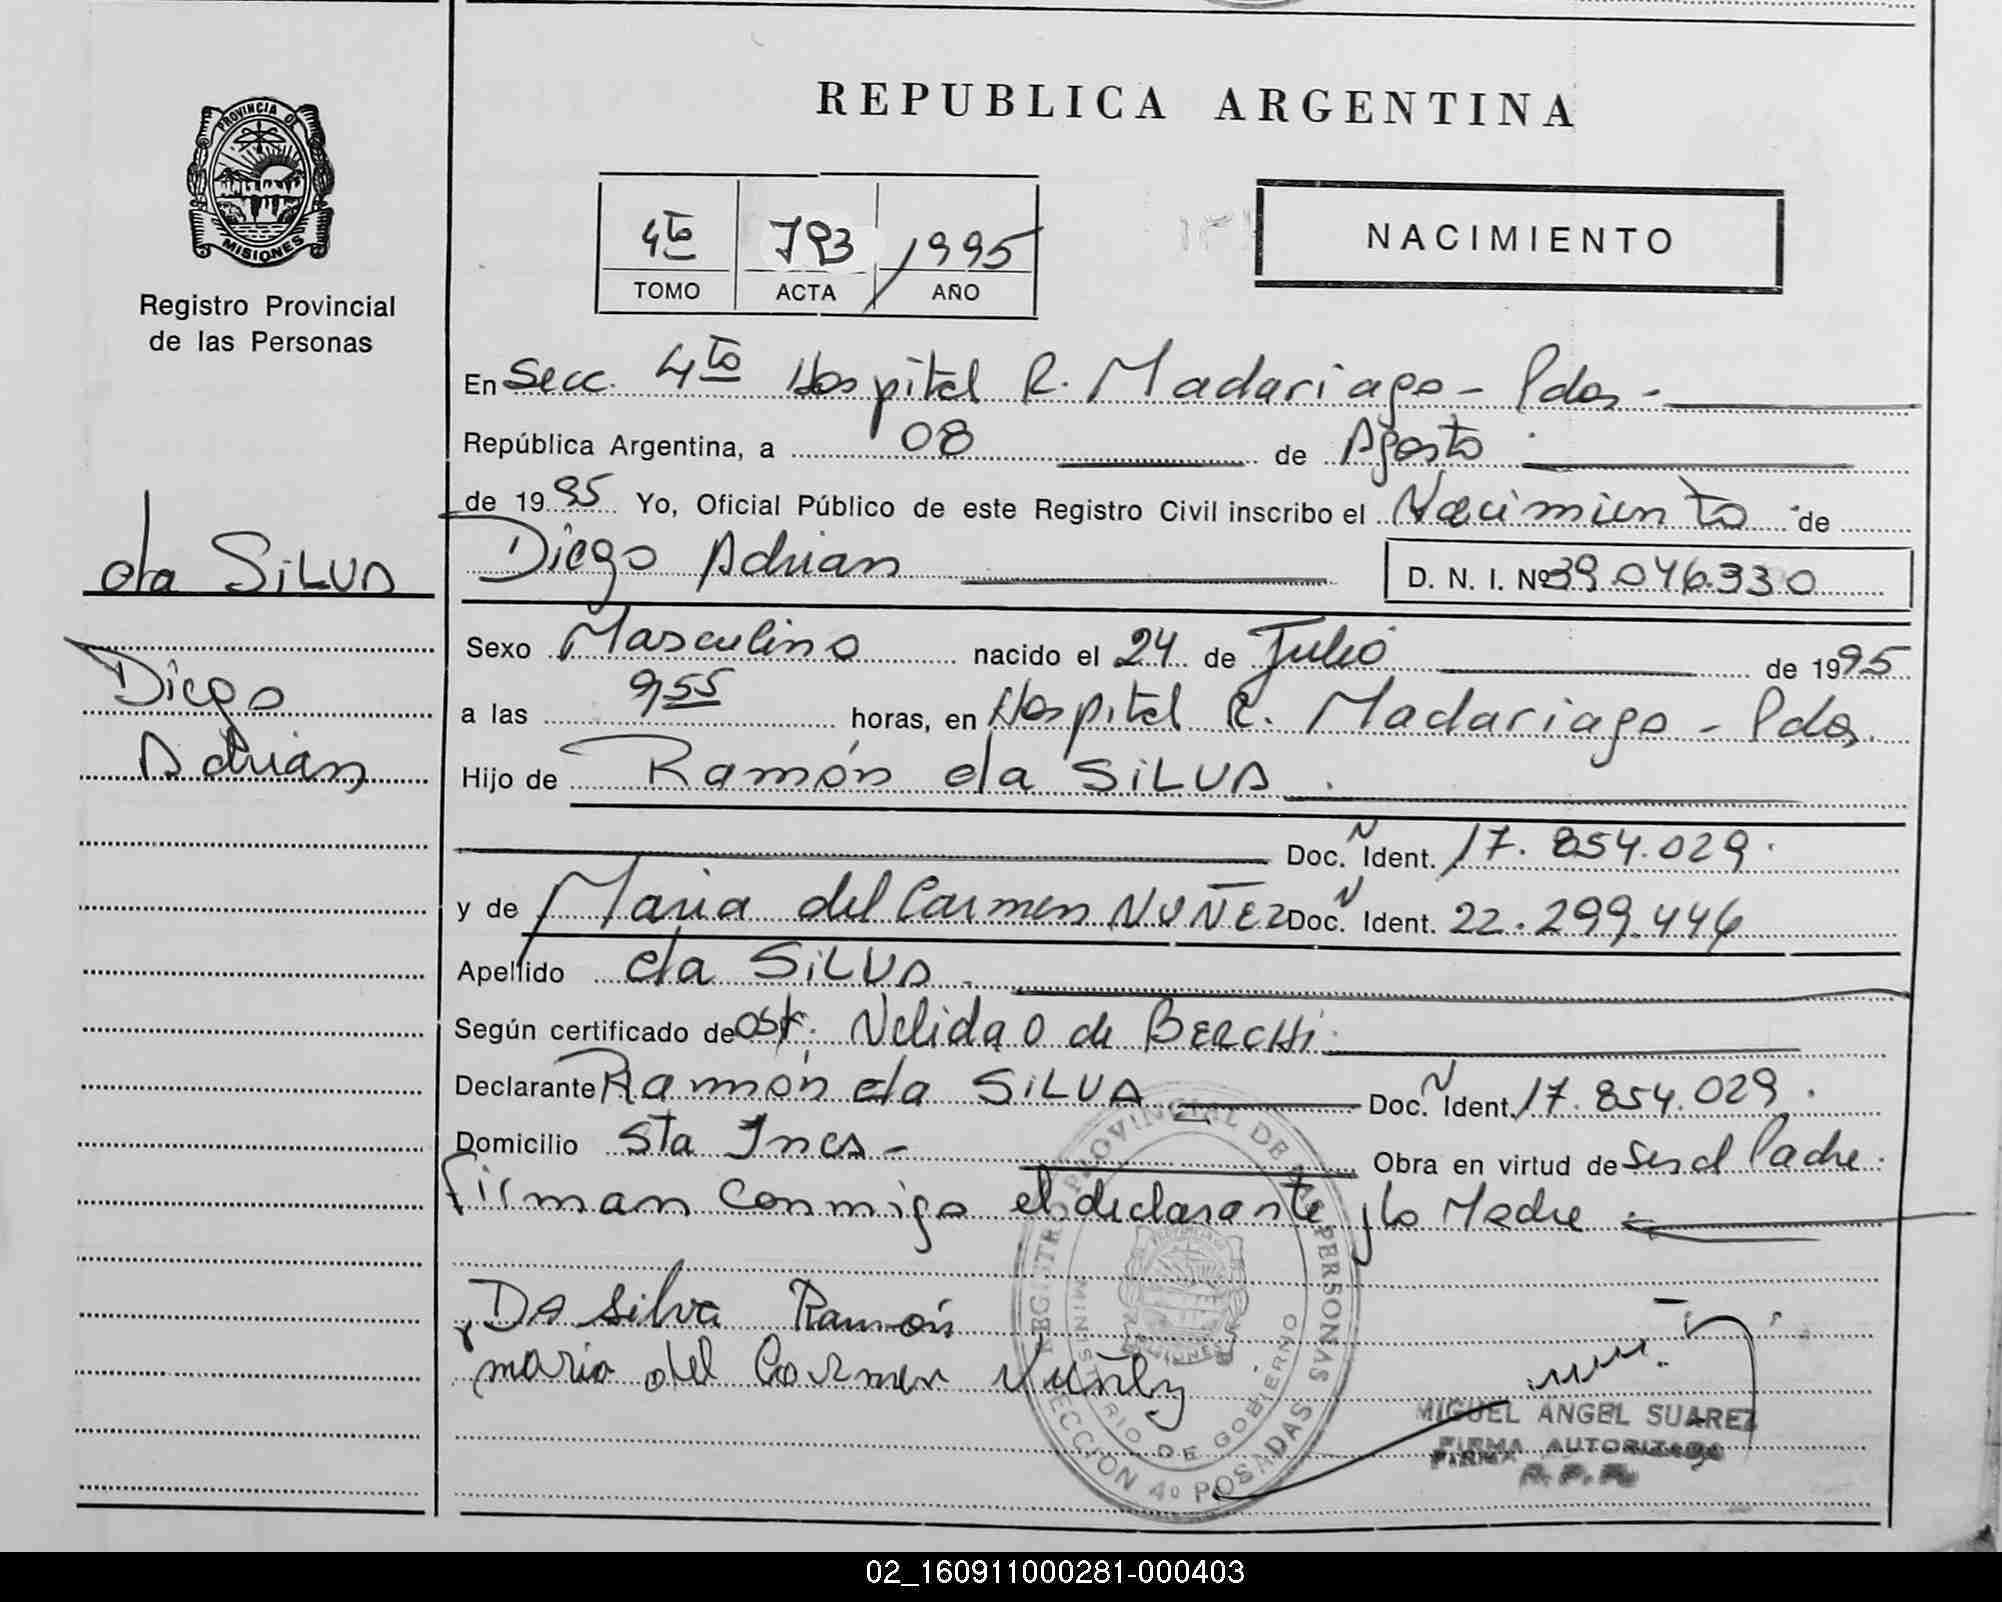 REPUBLICA ARGENTINA
PROVINCIA DE
MISIONES
Registro Provincial
de las Personas
4to 793 1995
TOMO ACTA AÑO
NACIMIENTO
En Secc. 4to Hospital R. Madariaga - Pdas -
República Argentina, a 08 de Agosto
de 1995 Yo, Oficial Público de este Registro Civil inscribo el Nacimiento de
Diego Adrian D. N. I. Nº 39.046.330
da SILVA
Diego
Adrian
Sexo Masculino nacido el 24 de Julio de 1995
a las 9,55 horas, en Hospital R. Madariaga - Pdas.
Hijo de Ramón da SILVA.
Doc. Ñ Ident. 17.854.029.
y de Maria del Carmen NUÑEZ Doc. Ñ Ident. 22.299.446
Apellido da SILVA.
Según certificado de Ost. Nelida O de BERCHI.
Declarante Ramón da SILVA Doc. Ñ Ident. 17.854.029.
Domicilio Sta Ines - Obra en virtud de ser el Padre.
Firman conmigo el declarante y la Madre
Da Silva Ramón
maria del Carmen Nuñez
REGISTRO PROVINCIAL DE LAS PERSONAS
MINISTERIO DE GOBIERNO
SECCION 4º POSADAS
MIGUEL ANGEL SUAREZ
FIRMA AUTORIZADA
R. P. P.
02_160911000281-000403